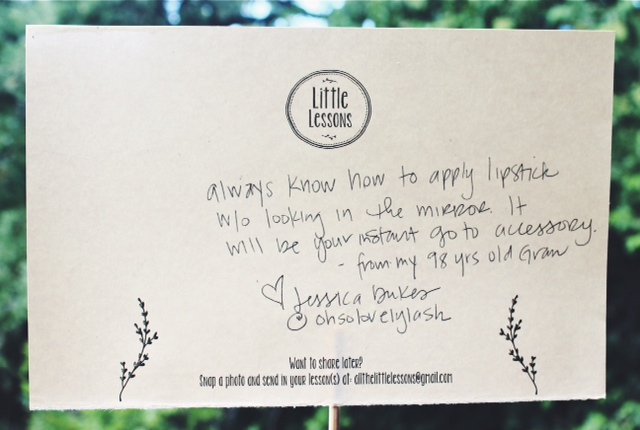 Little
Lessons
always know how to apply lipstick
w/o looking in the mirror. It
will be your instant go to accessory.
- from my 98 yrs old Gran
♡ Jessica Dukes
@ohsolovelylash
Want to share later?
Snap a photo and send in your lesson(s) at: allthelittlelessons@gmail.com